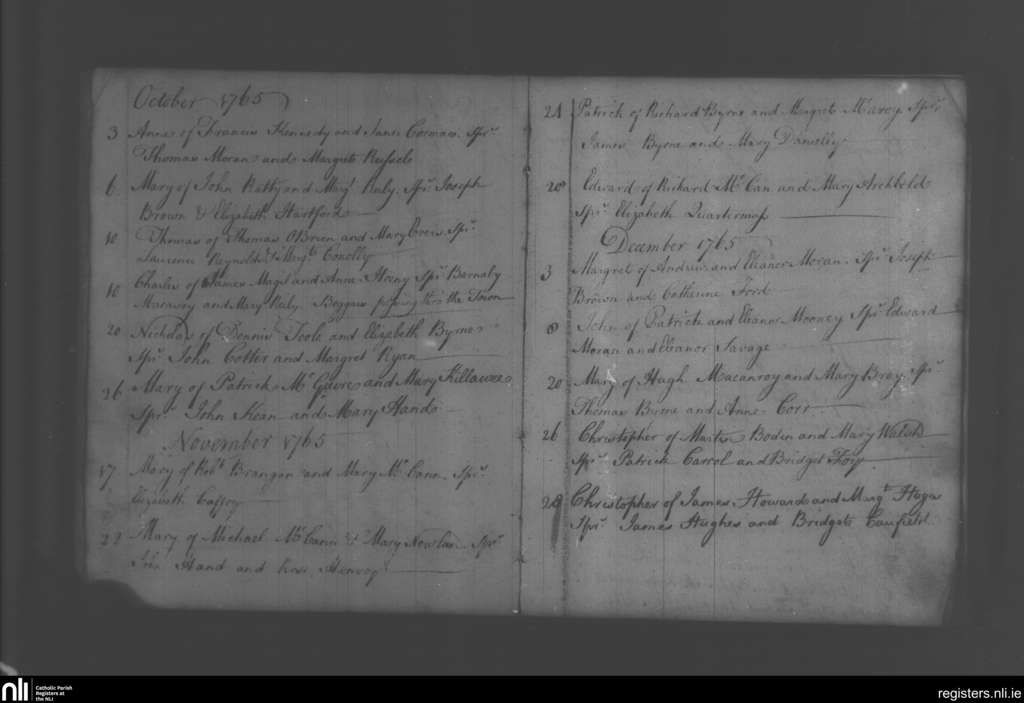 October 1765
3 Anne of Francis Kennedy and Jane Corman. Spr.
Thomas Moran and Margrete Russele
6 Mary of John Ratty and Mary Realy. Spr. Joseph
Brown & Elizabeth Hartford
10 Thomas of Thomas OBrien and Mary Spr.
Laurence Reynolds & Conolly
10 Charles of James Magil and Anne Strong Spr. Barnaby
and Mary Realy. Beggars passing thro the Town
20 Nicholas of Dennis Toole and Elizabeth Byrne
Spr. John Cotter and Margret Ryan
26 Mary of Patrick Mc Guire and Mary Killawee
Spr. John Kean and Mary Hand
November 1765
17 Mary of Robt. Brangan and Mary Mc Cann. Spr.
Elizabeth Caffry
22 Mary of Michael Mc Cann & Mary Nowlan. Spr.
John Hand and
24 Patrick of Richard Byrne and Margret Spr.
James Byrne and Mary Donnelly
28 Edward of Richard Mc Can and Mary Archbold
Spr. Elizabeth Quartermass
December 1765
3 Margret of Andrew and Eleanor Moran. Spr. Joseph
Brown and Catherine Ford
8 John of Patrick and Eleanor Mooney Spr. Edward
Moran and Eleanor Savage
20 Mary of Hugh Macanroy and Mary Bray. Spr.
Thomas Byrne and Anne Corr
26 Christopher of Martin Boden and Mary Walsh
Spr. Patrick Carrol and Bridget Foy
28 Christopher of James Howard and Margt.
Spr. James Hughes and Bridgete Caufield
nli Catholic Parish
Registers at
the NLI
registers.nli.ie